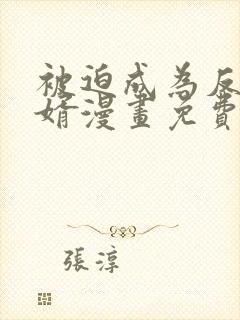 被迫成為反
婿漫畫免費
張淳